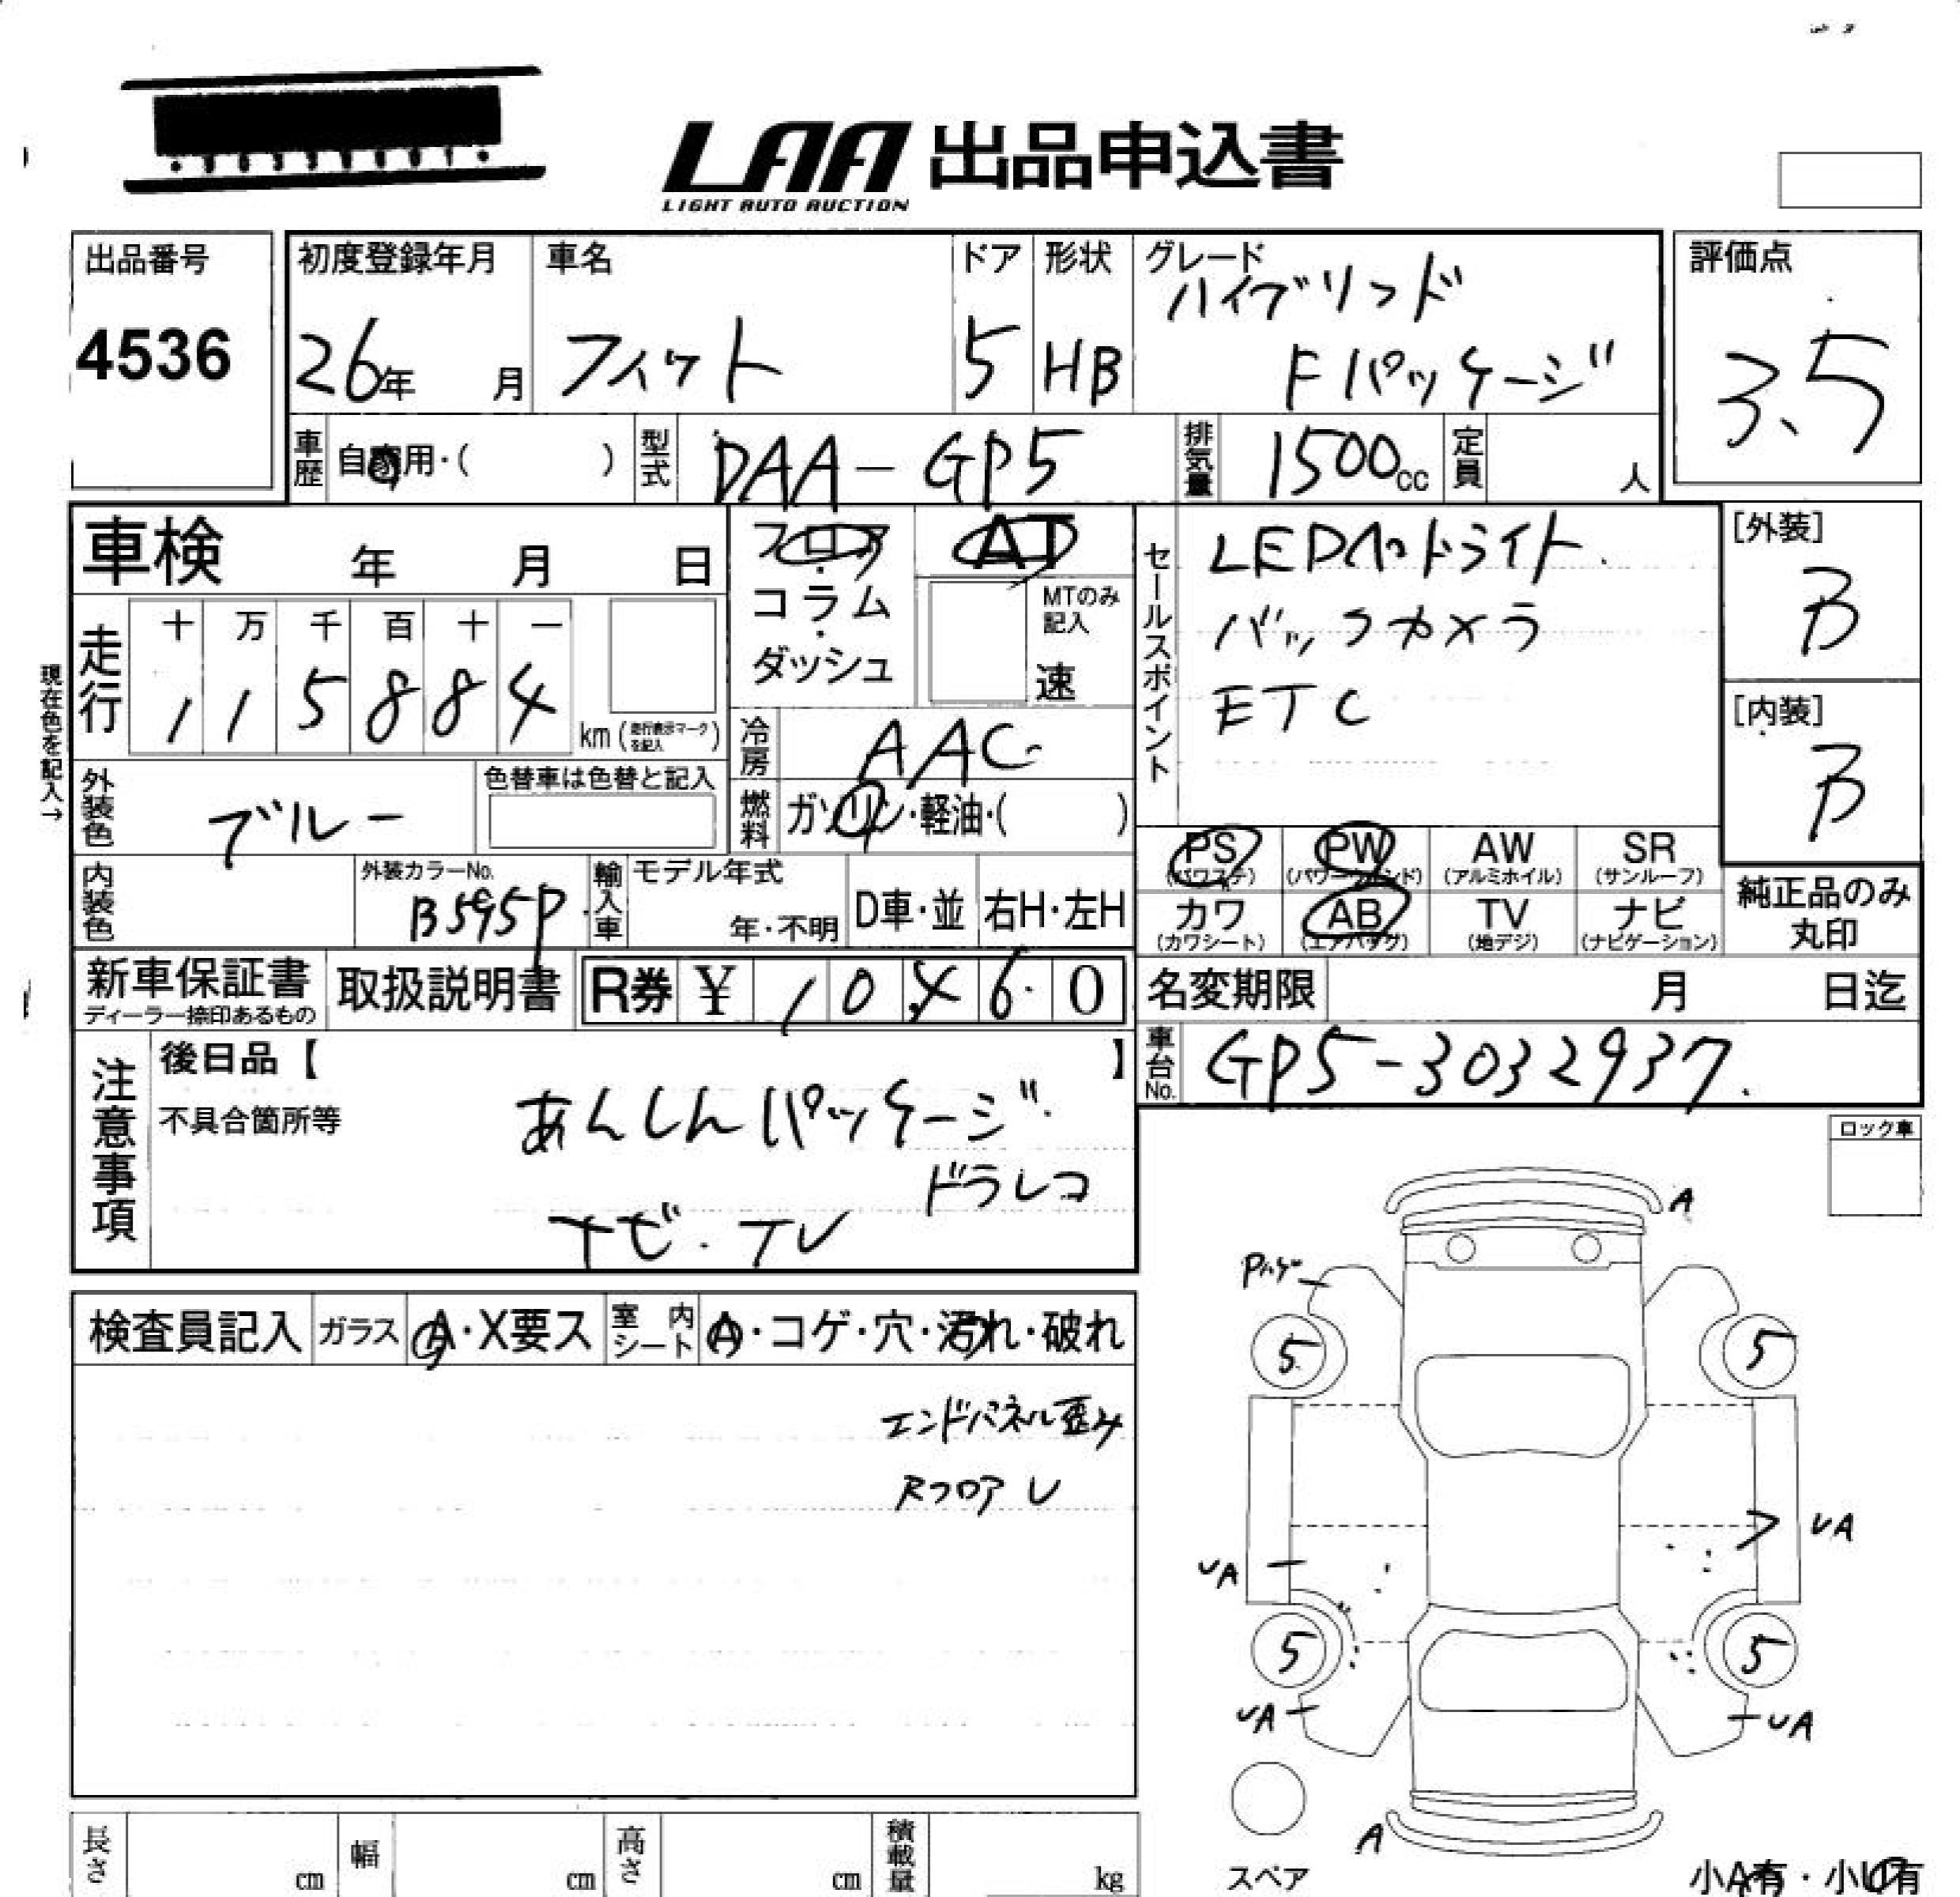 LAA 出品申込書
LIGHT AUTO AUCTION
出品番号
4536
初度登録年月
26年 月
車名
フィット
ドア
5
形状
HB
グレード
ハイブリッド
Fパッケージ
評価点
3.5
車歴 自家用・( )
型式 DAA-GP5
排気量 1500cc
定員 人
車検 年 月 日
フロア・コラム・ダッシュ
AT
MTのみ記入
速
現在色を記入→
走行 十 万 千 百 十 一
1 1 5 8 8 4
km (走行表示マークを記入)
冷房 AAC
燃料 ガソリン・軽油・( )
外装色 ブルー
色替車は色替と記入
内装色
外装カラーNo.
B595P
輸入車
モデル年式
年・不明
D車・並
右H・左H
セールスポイント
LEDヘッドライト
バックカメラ
ETC
[外装]
B
[内装]
B
PS (パワステ)
PW (パワーウインド)
AW (アルミホイル)
SR (サンルーフ)
カワ (カワシート)
AB (エアバッグ)
TV (地デジ)
ナビ (ナビゲーション)
純正品のみ丸印
新車保証書
ディーラー捺印あるもの
取扱説明書
R券 ¥ 10,460
名変期限 月 日迄
車台No. GP5-3032937
注意事項
後日品【 】
不具合箇所等
あんしんパッケージ
ドラレコ
ナビ・TV
ロック車
検査員記入
ガラス A・X要ス
室内シート A・コゲ・穴・汚れ・破れ
エンドパネル歪み
Rフロア U
A
5
5
UA
UA
5
5
UA
UA
A
スペア
小A有・小U有
長さ cm
幅 cm
高さ cm
積載量 kg